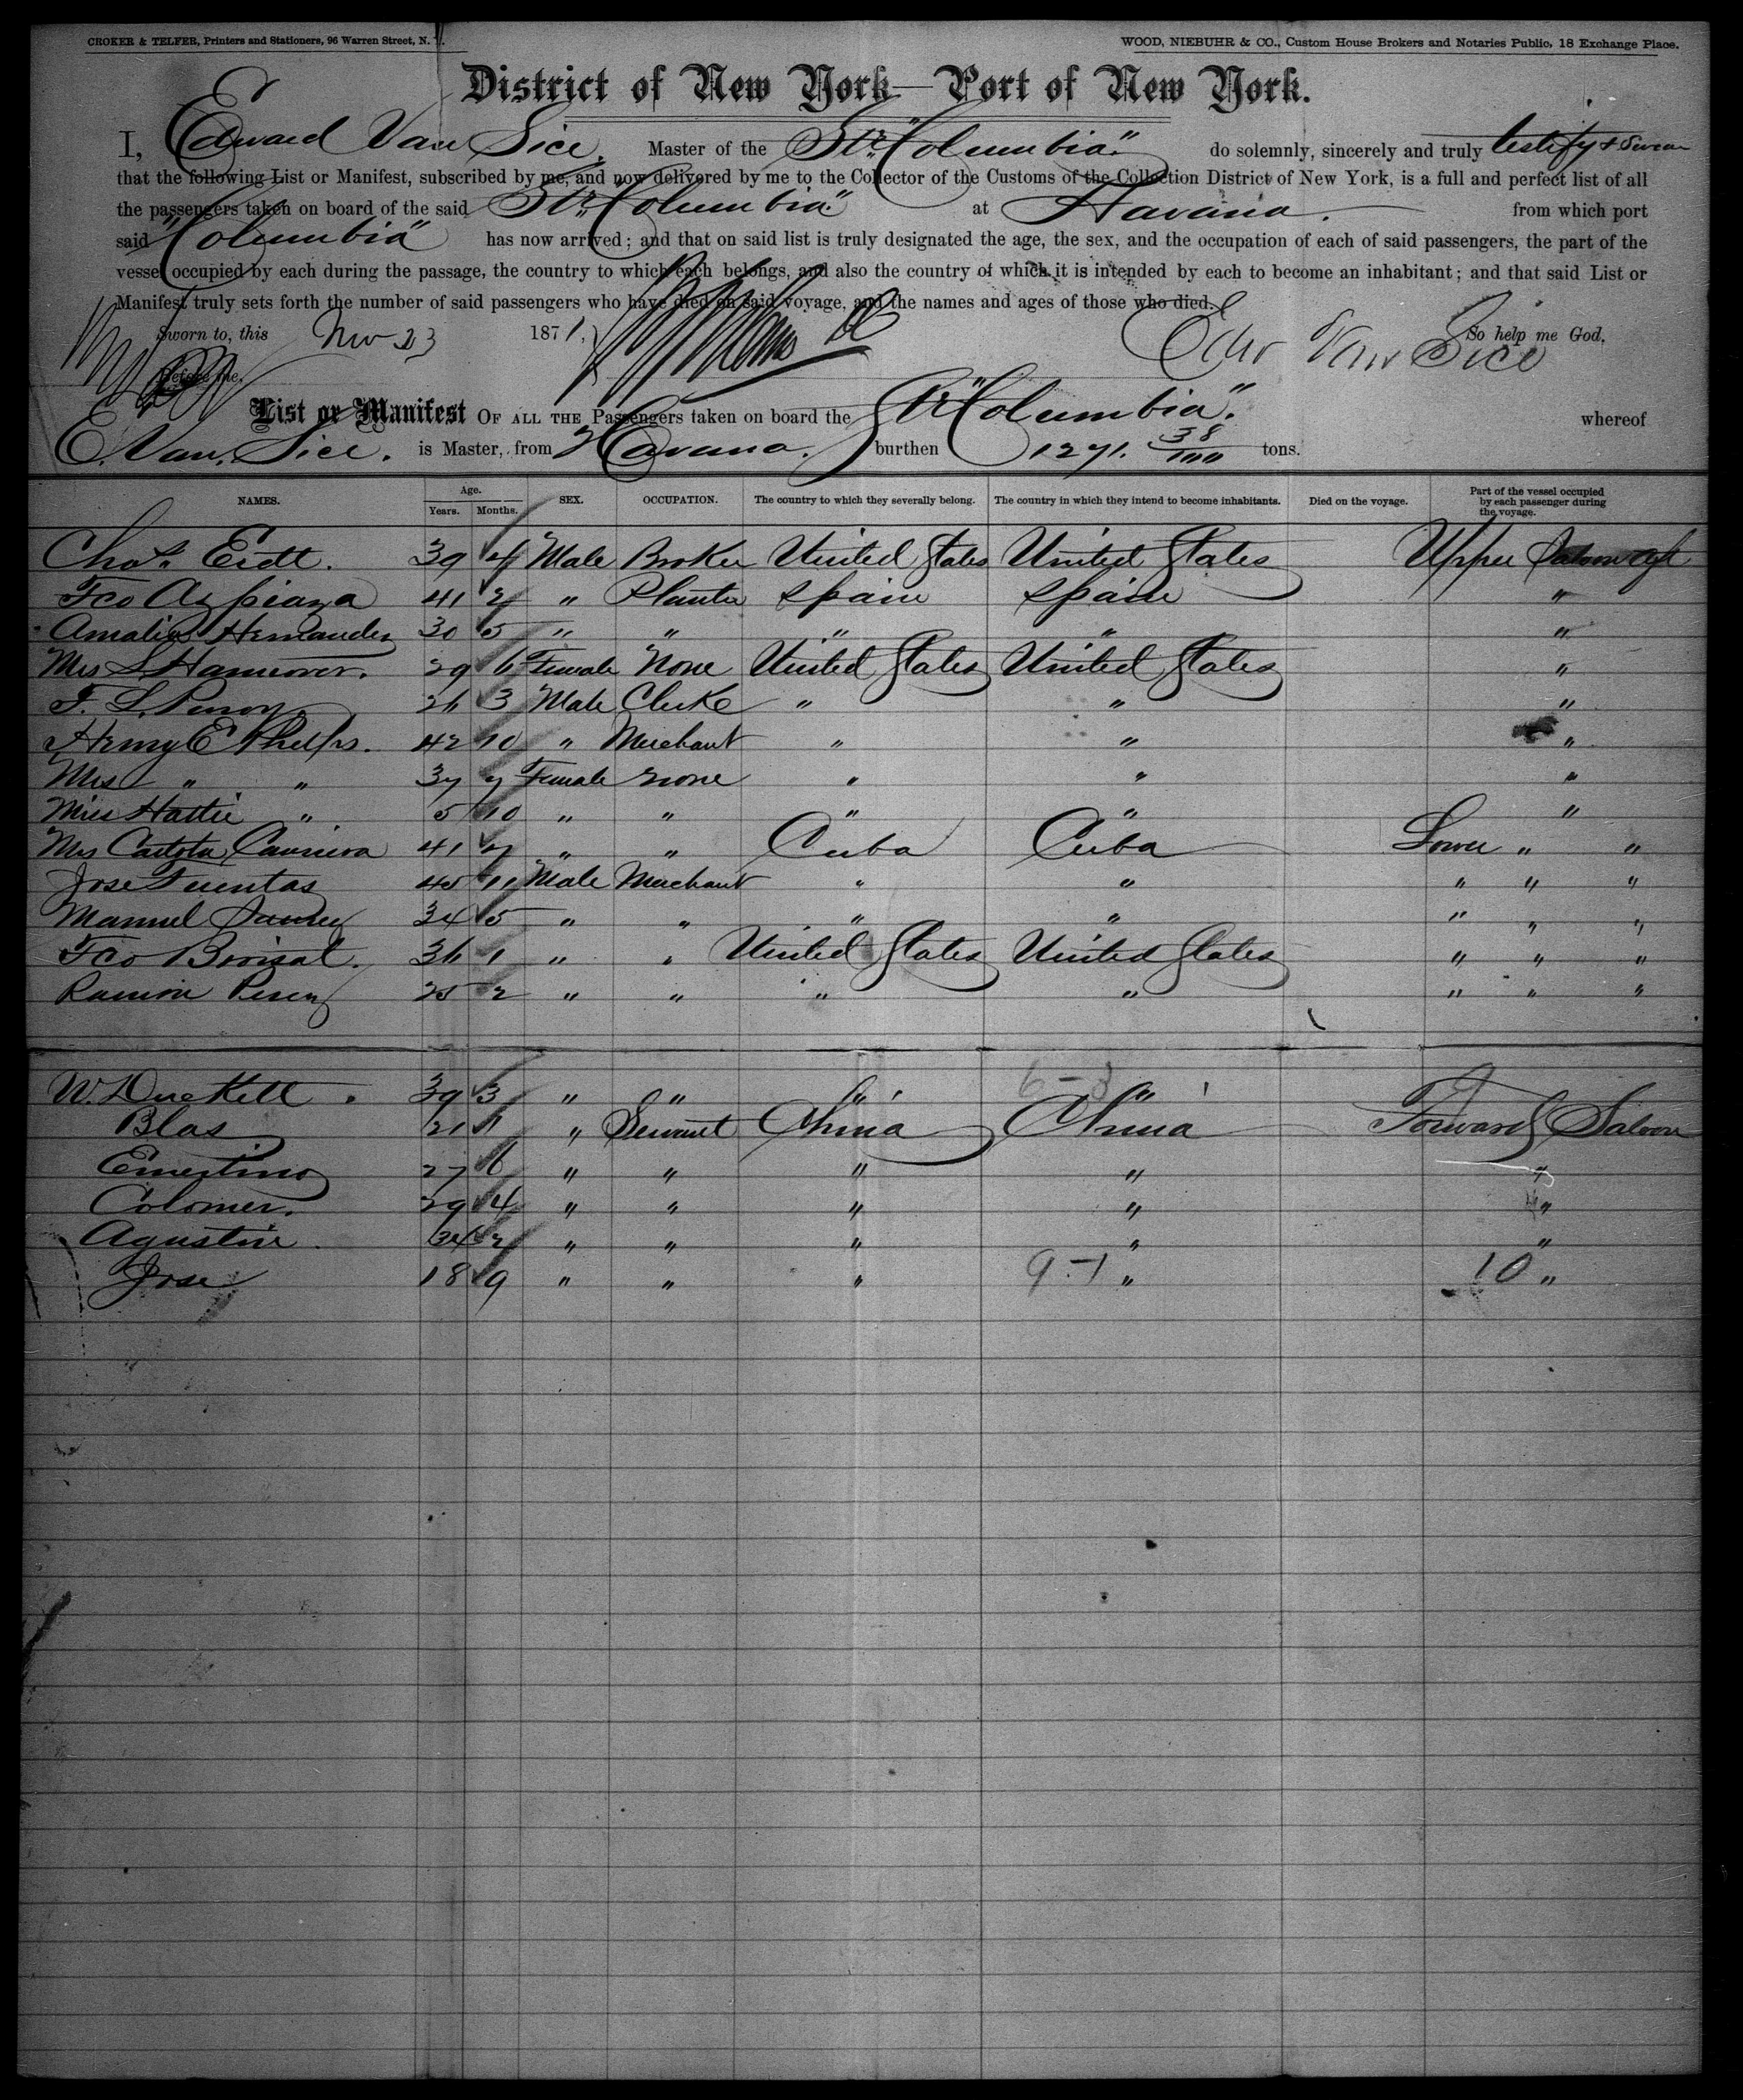 CROKER & TELFER, Printers and Stationers, 96 Warren Street, N. Y. WOOD, NIEBUHR & CO., Custom House Brokers and Notaries Public, 18 Exchange Place.
District of New York—Port of New York.
I, Edward Van Sice, Master of the Str. "Columbia" do solemnly, sincerely and truly testify & swear
that the following List or Manifest, subscribed by me, and now delivered by me to the Collector of the Customs of the Collection District of New York, is a full and perfect list of all
the passengers taken on board of the said Str. "Columbia" at Havana. from which port
said "Columbia" has now arrived; and that on said list is truly designated the age, the sex, and the occupation of each of said passengers, the part of the
vessel occupied by each during the passage, the country to which each belongs, and also the country of which it is intended by each to become an inhabitant; and that said List or
Manifest truly sets forth the number of said passengers who have died on said voyage, and the names and ages of those who died.
Sworn to, this Nov 23 1871. So help me God,
Edw Van Sice
Before me,
List or Manifest OF ALL THE Passengers taken on board the Str "Columbia". whereof
E. Van Sice. is Master, from Havana. burthen 1271. 38/100 tons.
NAMES. Age. Years. Months. SEX. OCCUPATION. The country to which they severally belong. The country in which they intend to become inhabitants. Died on the voyage. Part of the vessel occupied by each passenger during the voyage.
Chas. Eidt. 39 4 Male Broker United States United States Upper Saloon Aft
Fco Azpiaza 41 2 " Planter Spain Spain "
Amalia Hernandez 30 5 " " " " "
Mrs S Hanover. 29 6 Female None United States United States "
F. L. 26 3 Male Clerke " " "
Henry E Phelps. 42 10 " Merchant " " "
Mrs " " 37 7 Female none " " "
Miss Hattie " 5 10 " " " " "
Mrs Carlota 41 7 " " Cuba Cuba Lower " "
Jose Fuentas 45 11 Male Merchant " " " " "
Manuel 34 5 " " " " " " "
Fco 36 1 " " United States United States " " "
Ramon Perez 25 2 " " " " " " "
W. Duckett. 39 3 " " " 6-3 "
Blas 21 1 " Servant China China Forward Saloon
Ernestino 27 6 " " " " "
Colomer. 29 4 " " " " "
Agustin. 34 2 " " " " "
Jose 18 9 " " " 9-1 " 10 "